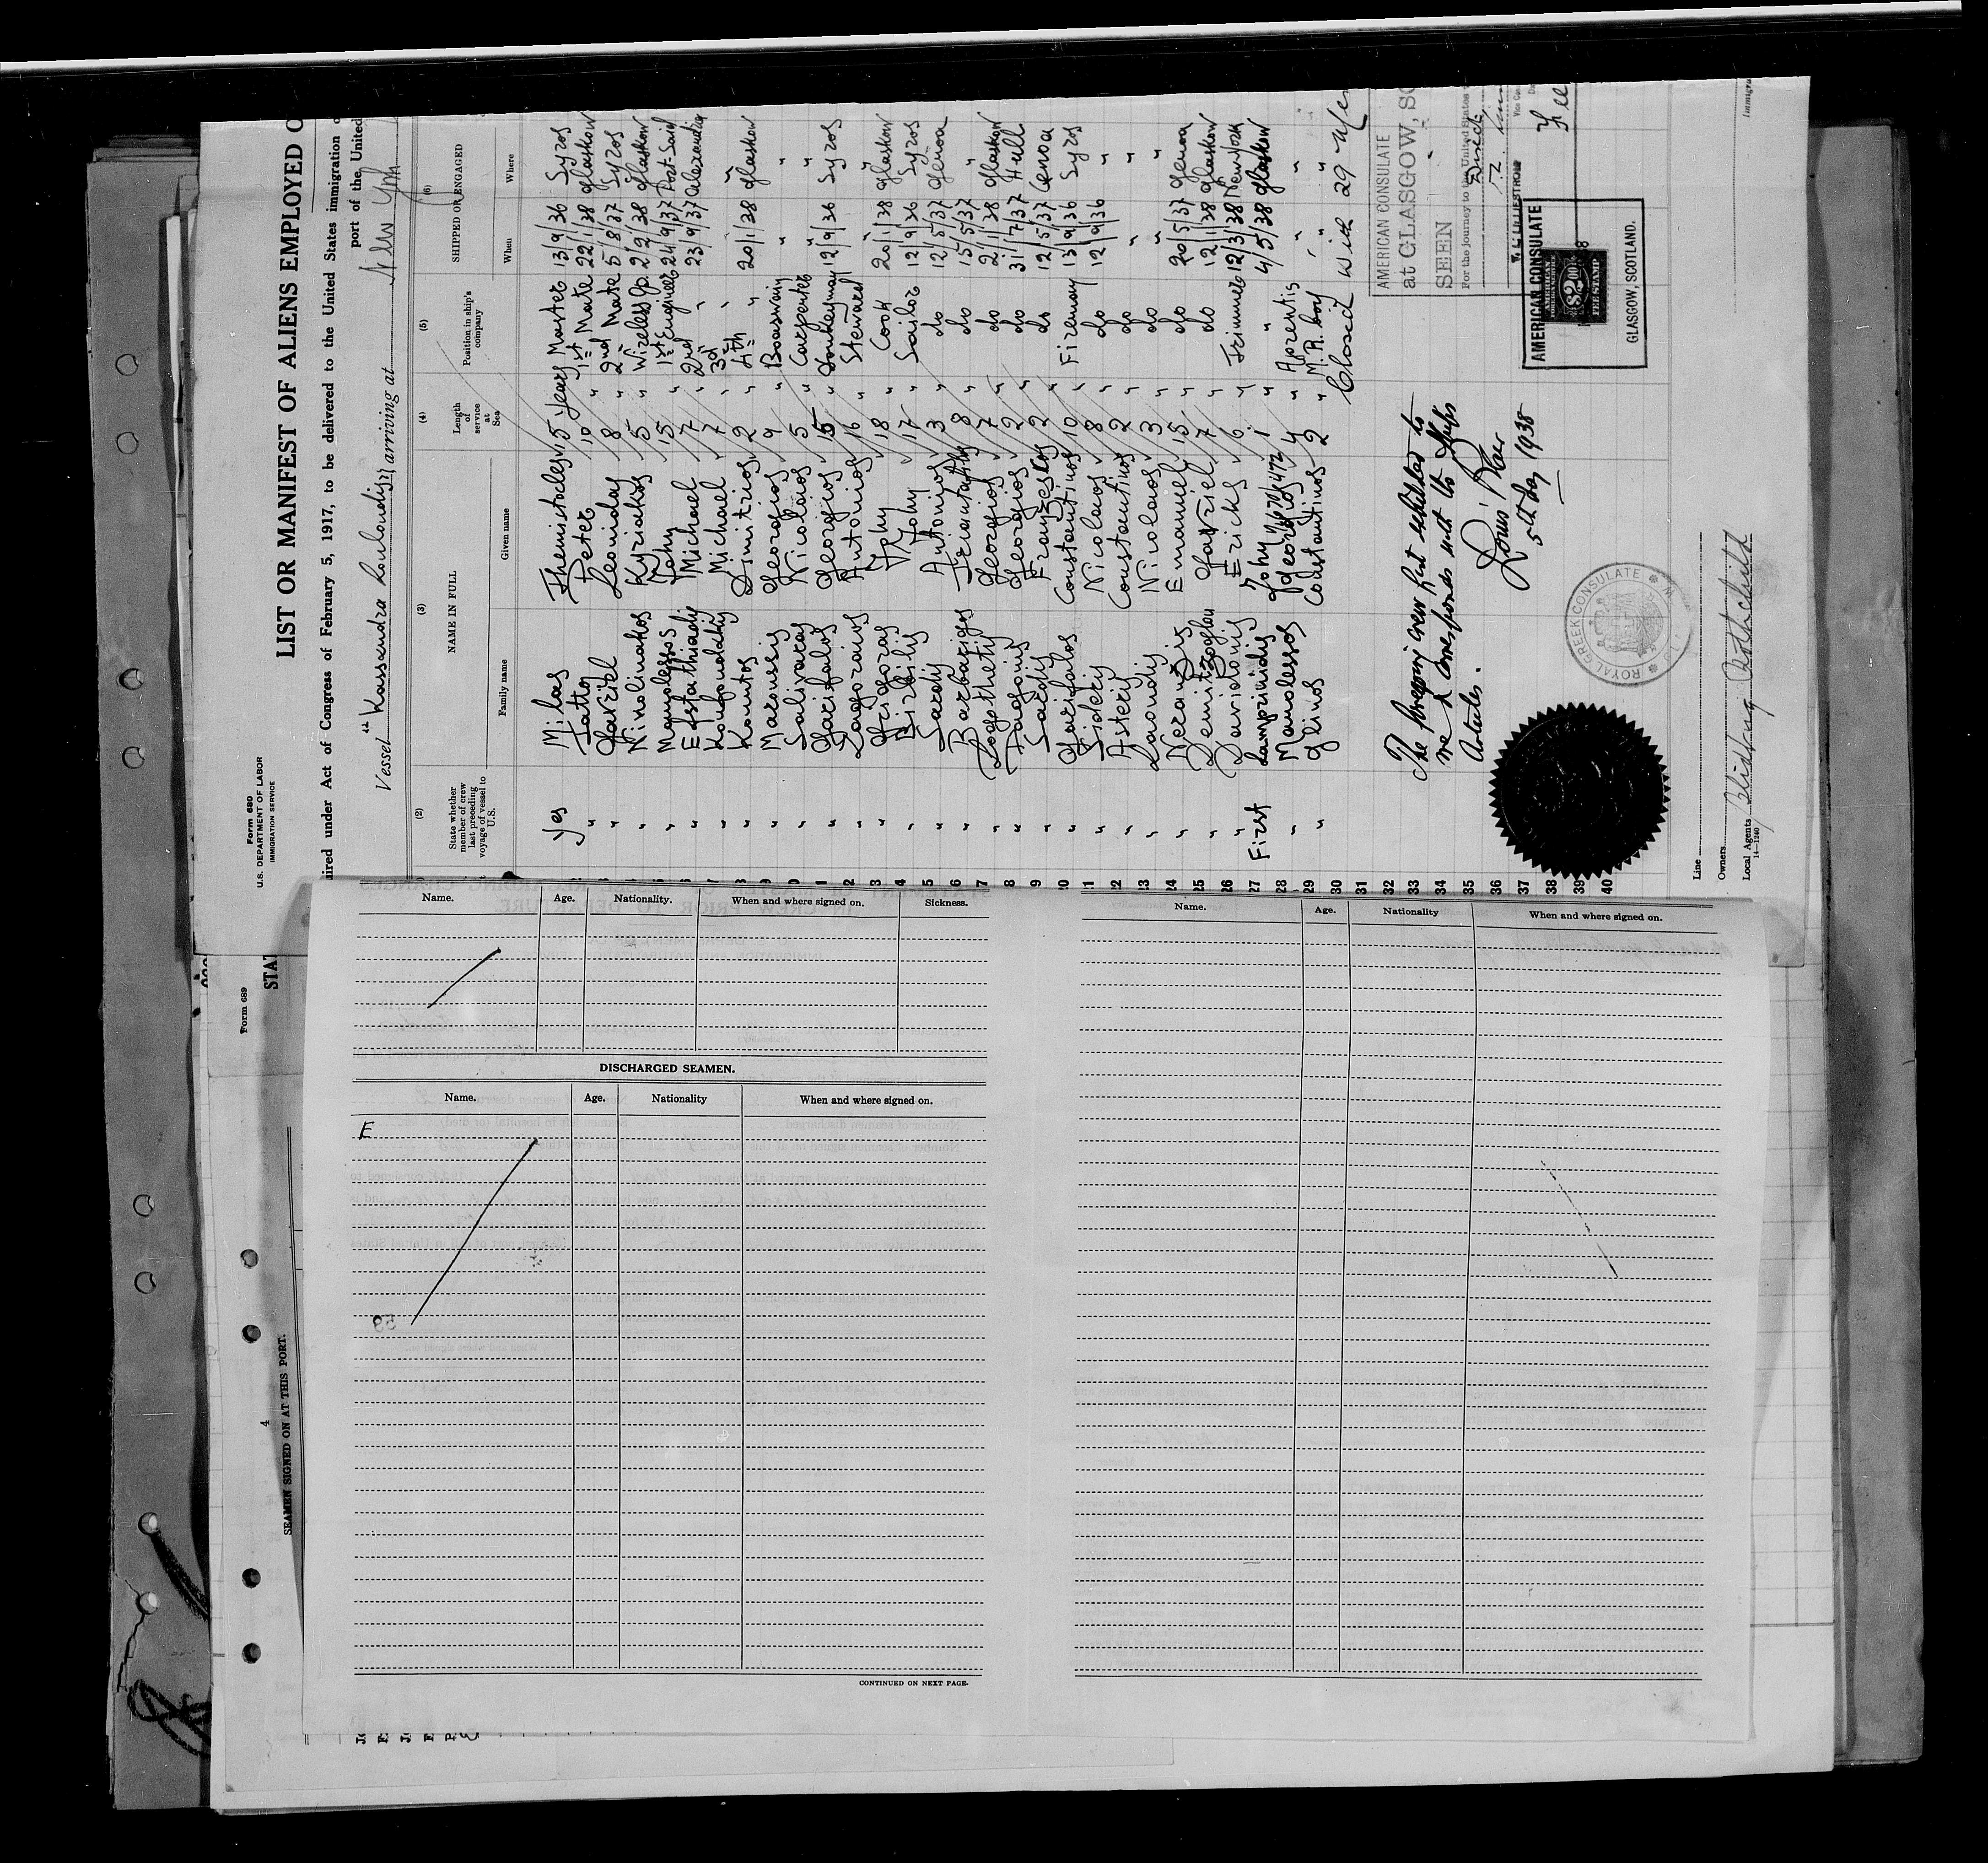 Form 680
U.S. DEPARTMENT OF LABOR
IMMIGRATION SERVICE
LIST OR MANIFEST OF ALIENS EMPLOYED O
ired under Act of Congress of February 5, 1917, to be delivered to the United States immigration o
port of the United
Vessel "Kassandra Louloudis" arriving at New York
(2) (3) (4) (5) (6)
State whether member of crew last preceding voyage of vessel to U.S. NAME IN FULL Length of service at Sea Position in ship's company SHIPPED OR ENGAGED
Family name Given name When Where
Yes Milas Themistocles 5 years Master 13/9/36 Syros
" Latto Peter 10 " 1st Mate 22/1/38 Glaskow
" Gavriel Leonidas 8 " 2nd Mate 5/8/37 Syros
" Ninolinakos Kyriakos 5 " Wireless Op. 22/1/38 Glaskow
" Manolessos John 15 " 1st Engineer 24/9/37 Port-Said
" Efstathiadis Michael 7 " 2nd " 23/9/37 Alexandria
" Michael 7 " 3d " " "
" Kountos Dimitrios 2 " 4th " 20/1/38 Glaskow
" Maroussis Georgios 9 " Boaswain " "
" Salivaras Nicolaos 5 " Carpenter " "
" Garifalos Georgios 15 " Donkeyman 12/9/36 Syros
" Antonios 16 " Steward " "
" Grigoras John 18 " Cook 20/1/38 Glaskow
" John 17 " Sailor 12/9/36 Syros
" Sardis Antonios 3 " do 12/5/37 Genoa
" Barbarigos Triantafilos 8 " do 15/5/37 "
" Logothetis Georgios 7 " do 2/1/38 Glaskow
" Georgios 2 " do 31/7/37 Hull
" Sardis Franzeskos 2 " do 12/5/37 Genoa
" Garifalos Constantinos 10 " Fireman 13/9/36 Syros
" Sideris Nicolaos 8 " do 12/9/36 "
" Asteris Constantinos 2 " do " "
" Nicolaos 3 " do " "
" Emanuel 15 " do 20/5/37 Genoa
" Demitzoglou Gavriel 7 " do 12/1/38 Glaskow
" Davidonis Ericks 6 " Trimmer 12/3/38 New York
First Lamprinidis John 1 " " 4/5/38 Glaskow
" Manolessos Georgios 4 " Aprentis " "
" Glinos Constantinos 2 " M. R. boy " "
Closed with 29
1
2
3
4
5
6
7
8
9
10
11
12
13
14
15
16
17
18
19
20
21
22
23
24
25
26
27
28
29
30
31
32
33
34
35
36
37
38
39
40
The foregoing crew list exhibited to
me & corresponds with the Ships
Articles.
5th May 1938
ROYAL GREEK CONSULATE
AMERICAN CONSULATE
at GLASGOW, SC
SEEN
For the journey to the United States
Direct
AMERICAN CONSULATE
$2.00
FEE STAMP
GLASGOW, SCOTLAND.
Line
Owners
Local Agents
14—1240
Immigra
Form 689
STAT
4
SEAMEN SIGNED ON AT THIS PORT.
Name. Age. Nationality. When and where signed on. Sickness.
DISCHARGED SEAMEN.
Name. Age. Nationality When and where signed on.
E
CONTINUED ON NEXT PAGE.
Name. Age. Nationality When and where signed on.